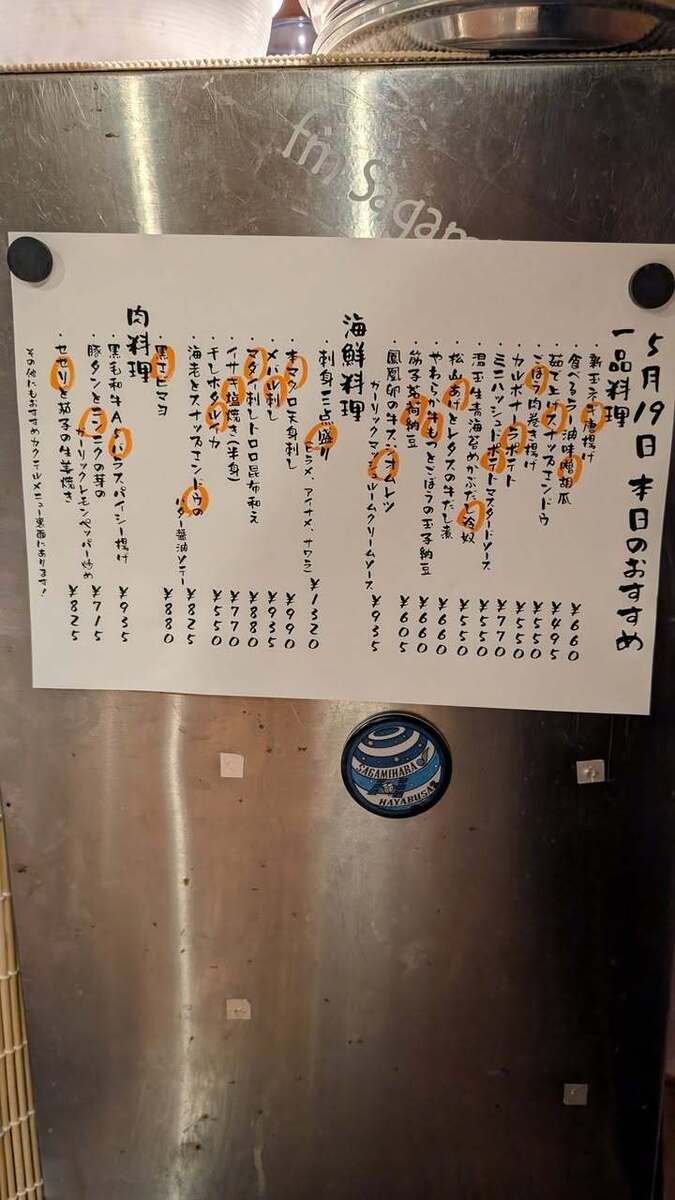 fm Sagam
5月19日 本日のおすすめ
一品料理
・新玉ネギ唐揚げ ¥660
・食べるラー油味噌胡瓜 ¥495
・茹で上げスナップエンドウ ¥550
・ごぼう肉巻き揚げ ¥550
・カルボナーラポテト ¥770
・ミニハッシュドポテトマスタードソース ¥550
・温玉生青海苔めかぶだし冷奴 ¥550
・松山あげとレタスの牛だし煮 ¥660
・やわらか牛もつとごぼうの玉子納豆 ¥660
・筋子茗荷納豆 ¥605
・鳳凰卵の牛スジオムレツ
ガーリックマッシュルームクリームソース ¥935
海鮮料理
・刺身三点盛り
(ヒラメ、アイナメ、サワラ) ¥1320
・本マグロ天身刺し ¥990
・メバル刺し ¥935
・マダイ刺しトロロ昆布和え ¥880
・イサキ塩焼き(半身) ¥770
・干しホタルイカ ¥550
・海老とスナップエンドウの
バター醤油ソテー ¥825
・黒エビマヨ ¥880
肉料理
・黒毛和牛A5バラスパイシー揚げ ¥935
・豚タンとニンニクの芽の
ガーリックレモンペッパー炒め ¥715
・セセリと茄子の生姜焼き ¥825
その他にもおすすめカクテルメニュー裏面にあります!
SAGAMIHARA
HAYABUSA2